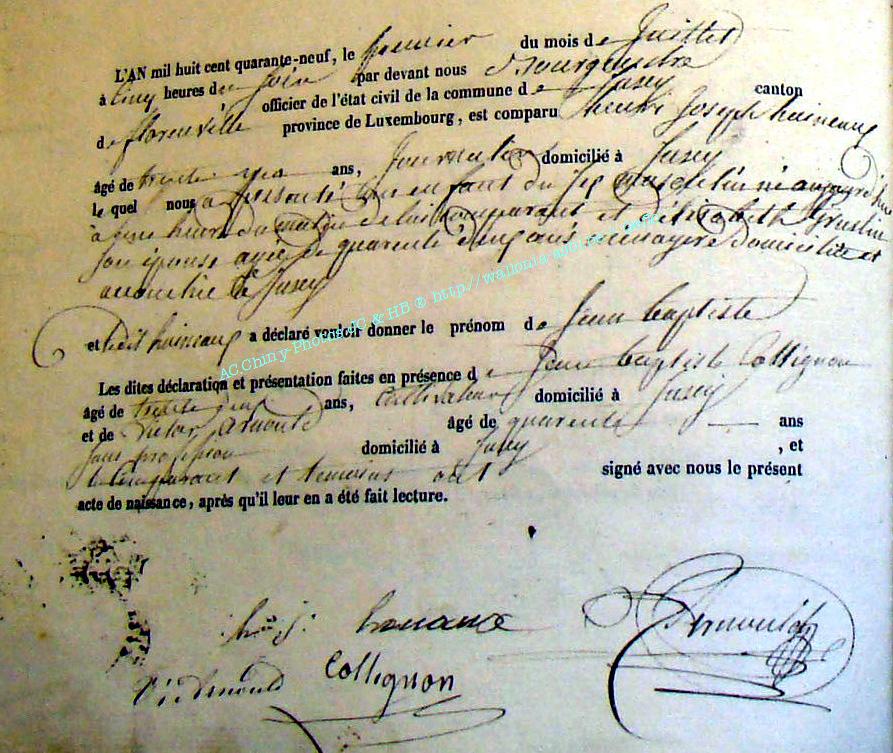 L'AN mil huit cent quarante-neuf, le premier du mois de Juillet
à cinq heures du soir par devant nous Bourgmestre
officier de l'état civil de la commune de Jusey canton
de florenville province de Luxembourg, est comparu henri Joseph haineaux
âgé de trente ans, Journalier domicilié à Jusey
le quel nous a présenté un enfant du sexe masculin né aujourd'hui
à une heure du matin de lui comparant et Elisabeth
son épouse agée de quarente cinq ans ménagère domiciliée et
accouchée à Jusey
et ledit haineaux a déclaré vouloir donner le prénom de Jean baptiste
Les dites déclaration et présentation faites en présence de Jean baptiste Collignon
âgé de trente deux ans, cultivateur domicilié à Jusey
et de Victor arnould âgé de quarente ans
sans profession domicilié à Jusey , et
le comparant et temoins ont signé avec nous le présent
acte de naissance, après qu'il leur en a été fait lecture.
AC.Chiny Photos JC & HB ® http://wallonia-asbl.be
h. j.
V. arnould Collignon